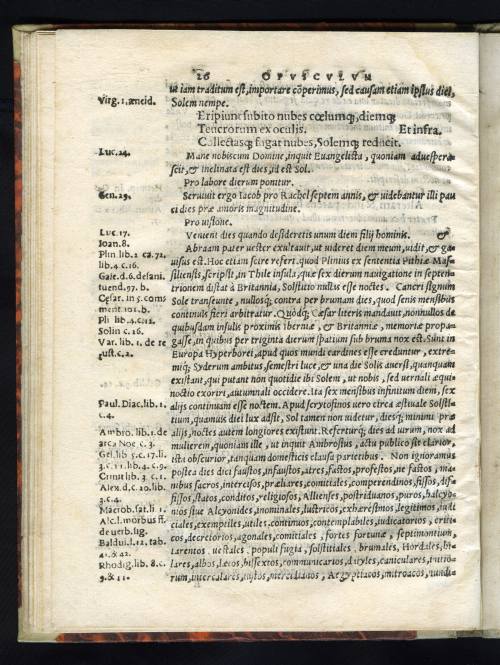 26 OPVSCVLVM
ut iam traditum est, importare cōperimus, sed causam etiam ipsius diei,
Solem nempe.
Eripiunt subito nubes cœlumq;, diemq;
Teucrorum ex oculis. Et infra.
Collectasq; fugat nubes, Solemq; reducit.
Mane nobiscum Domine, inquit Euangelista, quoniam aduespera
scit, & inclinata est dies, id est Sol.
Pro labore dierum ponitur.
Seruiuit ergo Iacob pro Rachel septem annis, & uidebantur illi pau
ci dies præ amoris magnitudine.
Pro uisione.
Venient dies quando desideretis unum diem filij hominis. &
Abraam pater uester exultauit, ut uideret diem meum, uidit, & ga-
uisus est. Hoc etiam scire refert. quod Plinius ex sententia Pithiæ Mas-
siliensis, scripsit, in Thile insula, quæ sex dierum nauigatione in septen-
trionem distat à Britannia, Solstitio nullas esse noctes. Cancri signum
Sole transeunte, nullosq;, contra per brumam dies, quod senis mensibus
continuis fieri arbitratur. Quòdq; Cæsar literis mandauit, nonnullos de
quibusdam insulis proximis Iberniæ, & Britanniæ, memoriæ propa-
gasse, in quibus per triginta dierum spatium sub bruma nox est. Sunt in
Europa Hyperborei, apud quos mundi cardines esse creduntur, extre-
miq; Syderum ambitus, semestri luce, & una die Solis auersi, quanquam
existant, qui putant non quotidie ibi Solem, ut nobis, sed uernali æqui
noctio exoriri, autumnali occidere. Ita sex mensibus infinitum diem, sex
alijs continuam esse noctem. Apud scrytofinos uero circa æstuale Solsti-
tium, quamuis diei lux adsit, Sol tamen non uidetur, diesq; minimi præ
alijs, noctes autem longiores existunt. Referturq; dies ad uirum, nox ad
mulierem, quoniam ille, ut inquit Ambrosius, actu publico sit clarior,
ista obscurior, tanquam domesticis clausa parietibus. Non ignoramus
postea dies dici faustos, infaustos, atres, fastos, profestos, ne fastos, ma-
nibus sacros, intercisos, præliares, comitiales, comperendinos, fissos, dif-
fissos, status, conditos, religiosos, Allienses, postriduanos, puros, halcyo-
nios siue Alcyonides, inominales, lustricos, exhæresimos, legitimos, iudi
ciales, exemptiles, utiles, continuos, contemplabiles, iudicatorios, criti-
cos, decretorios, agonales, comitiales, fortes fortunæ, septimontium,
tarentos. uestales. populi fugia, solstitiales, brumales, Hordales, hi-
lares, albos, lætos, bissextos, communicarios, diuales, caniculares, rutio-
rum, intercalares, iustos, mercidinos, Aegyptiacos, mitroacos, nundi-
Virg. 1. æneid.
Luc. 24.
Gen. 29.
Luc. 17.
Ioan. 8.
Plin lib. 2 ca. 72.
lib. 4 c. 16.
Gale. d. 6. de sani.
tuend. 97. b.
Cæsar. in 5. com̄
ment. 101. b.
Pli lib. 4. c. 12.
Solin c. 16.
Var. lib. 1. de re
rust. c. 2.
Paul. Diac. lib. 1.
c. 4.
Ambro. lib. 1. de
arca Noe c. 3.
Gel. lib 5. c. 17. li.
3. c. 11. lib. 4. c. 9.
Crinit lib. 3. c. 1.
Alex. d. c. 20. lib.
3. c. 4.
Macrob. sat. li. 1.
Alc. l. morbus ff.
de uerb. sig.
Baldui. l. 12. tab.
41. & 42.
Rhodig. lib. 8. c.
9. & 11.